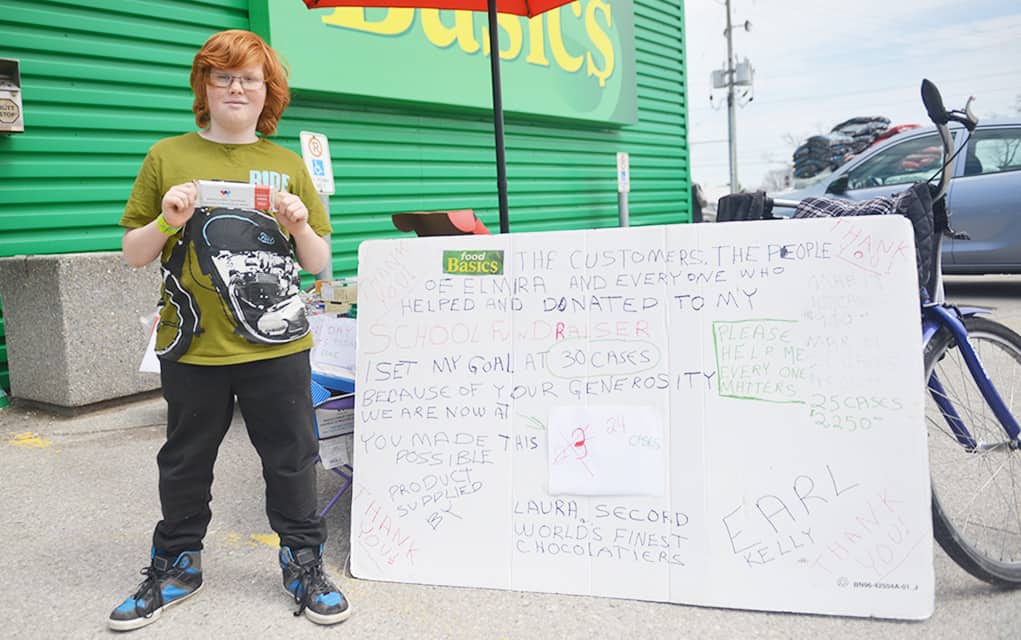 Basic$
BUTT
STOP
RIDE
THANK
YOU!
food
Basics
THE CUSTOMERS. THE PEOPLE
OF ELMIRA AND EVERYONE WHO
HELPED AND DONATED TO MY
SCHOOL FUNDRAISER
I SET MY GOAL AT 30 CASES
BECAUSE OF YOUR GENEROSITY
WE ARE NOW AT
24
CASES
YOU MADE THIS
POSSIBLE
PRODUCT
SUPPLIED
BY
LAURA SECOND
WORLD'S FINEST
CHOCOLATIERS
THANK
YOU!
THANK
YOU!
PLEASE
HELP ME
EVERY ONE
MATTERS
MARCH
25 CASES
2250
EARL
KELLY
THANK
YOU!
BN96-42554A-01